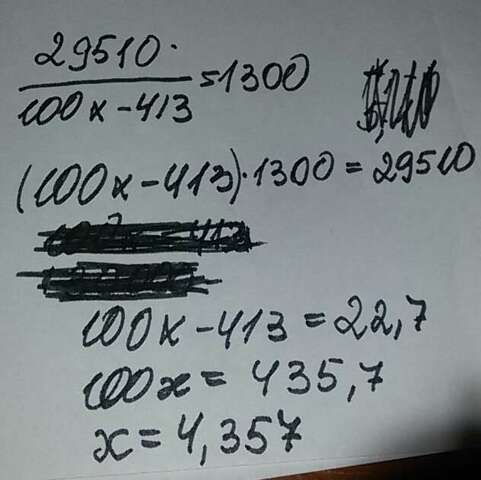 29510
100x-413 =1300
(100x-413)·1300=29510
100x-413=22,7
100x=435,7
x=4,357